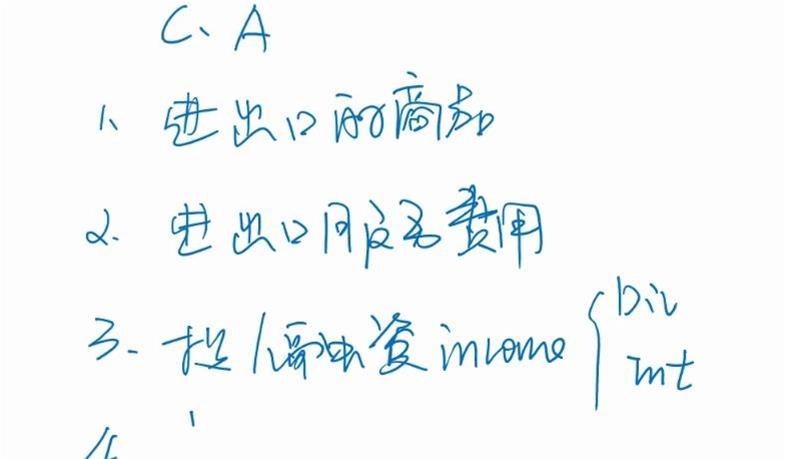 C、A
1、进出口的商品
2. 进出口服务费用
3. 投/融资 income { Div
Int
4